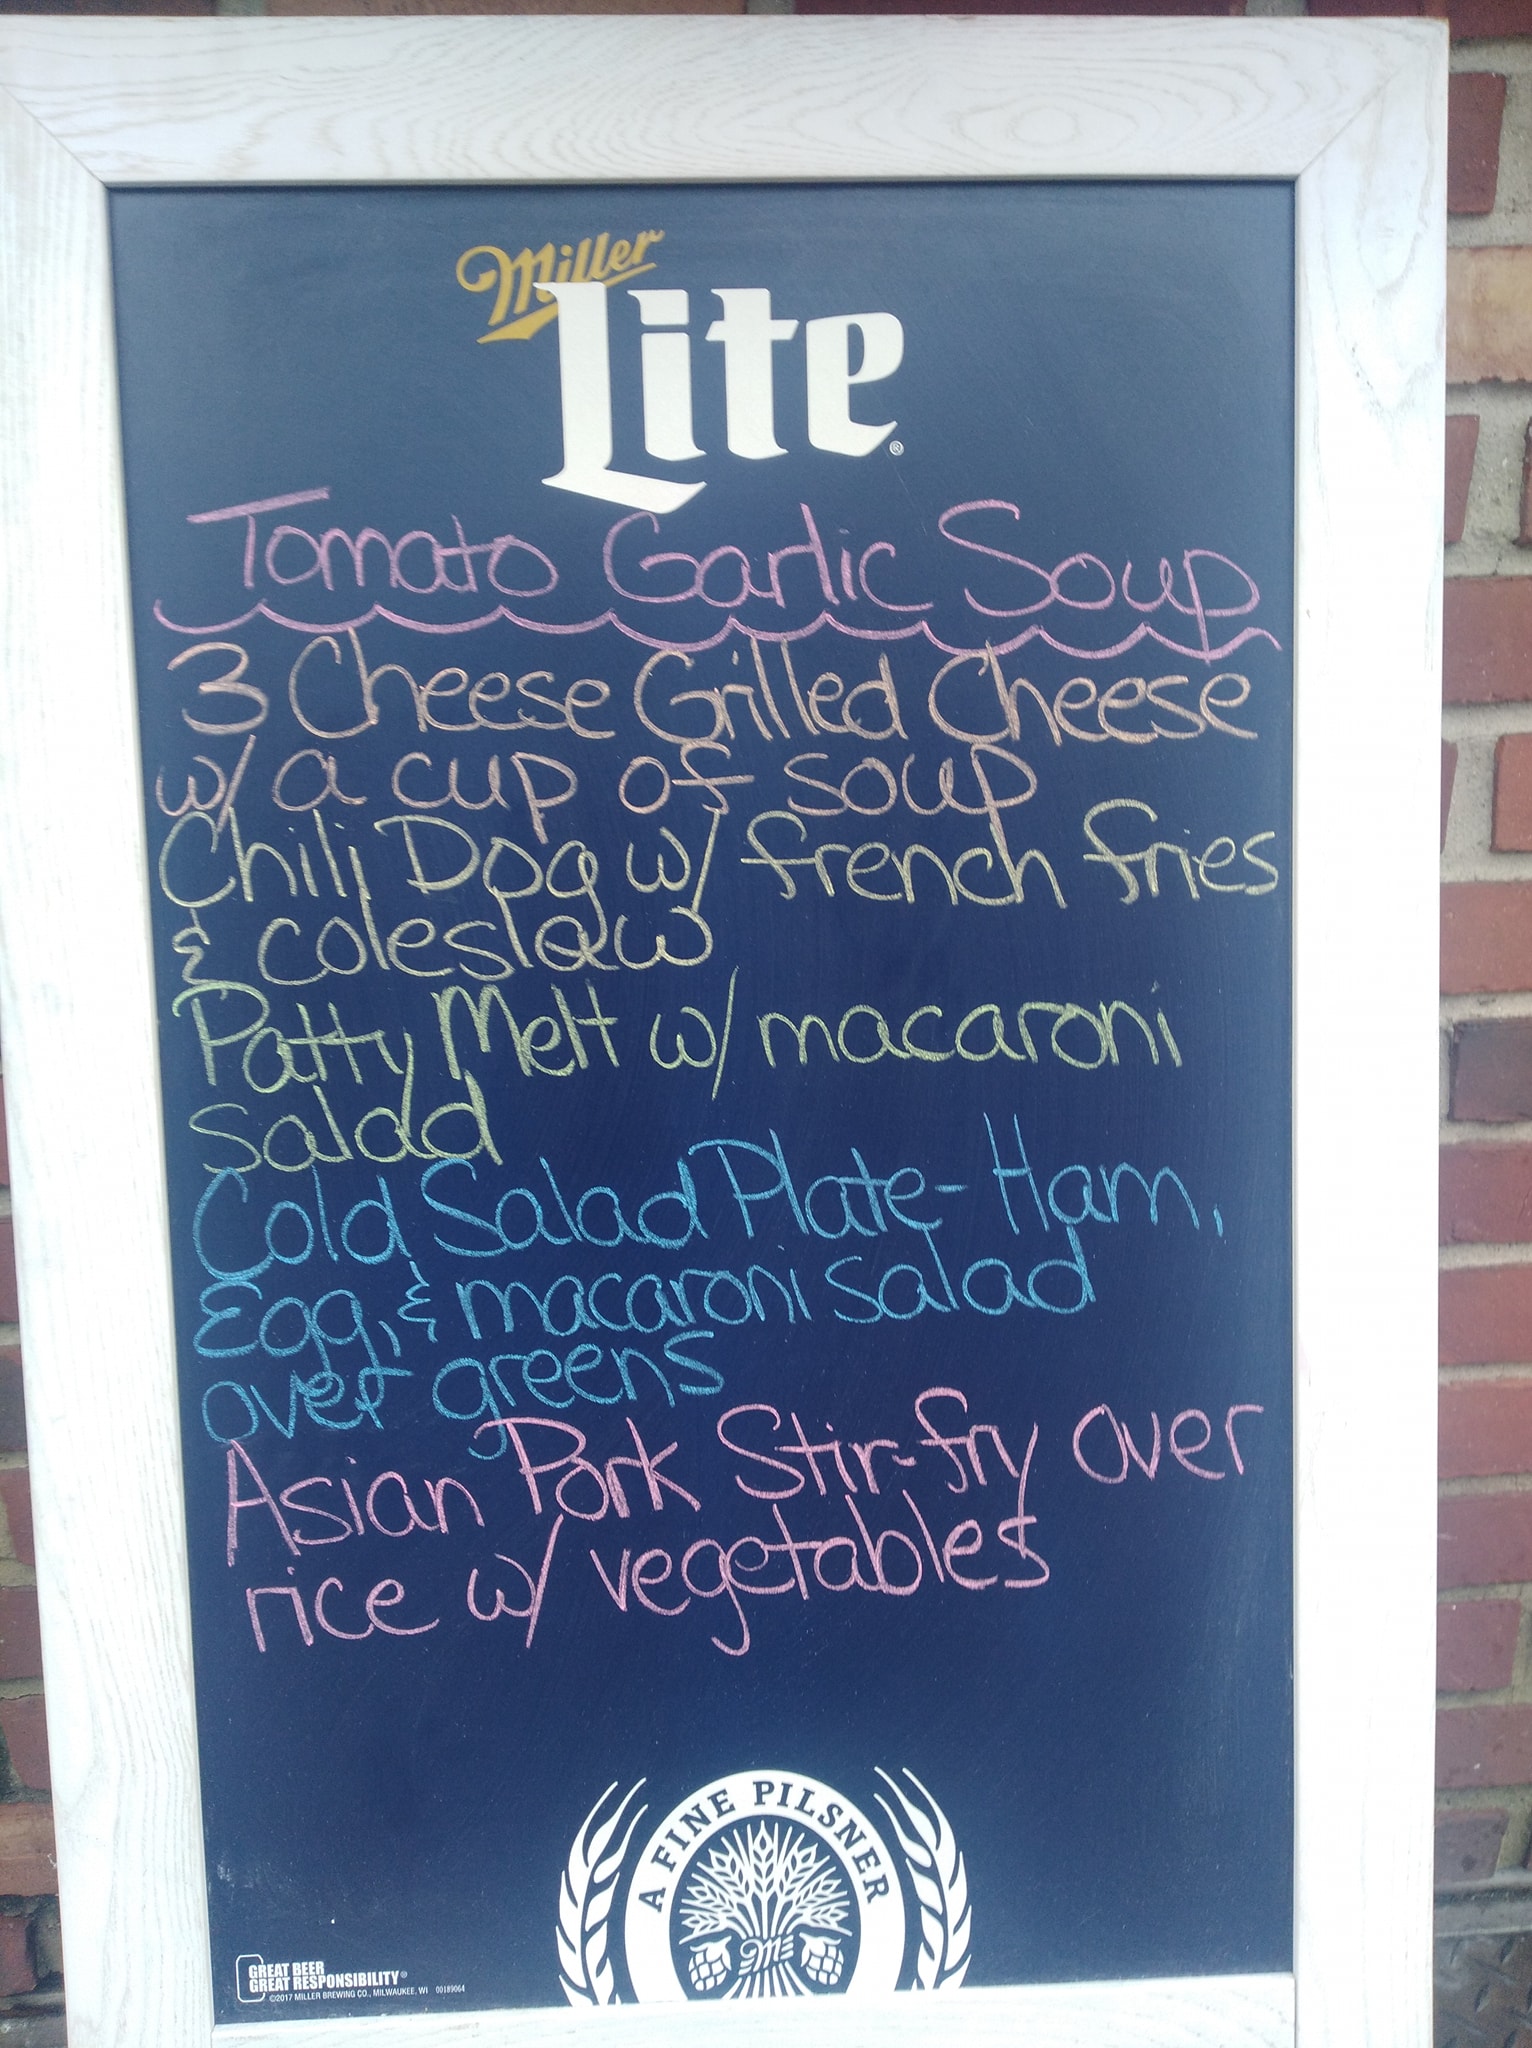 Miller
Lite®
Tomato Garlic Soup
3 Cheese Grilled Cheese
w/ a cup of soup
Chili Dog w/ french fries
& coleslaw
Patty Melt w/ macaroni
salad
Cold Salad Plate- Ham,
Egg, & macaroni salad
over greens
Asian Pork Stir-fry over
rice w/ vegetables
A FINE PILSNER
M
GREAT BEER
GREAT RESPONSIBILITY®
©2017 MILLER BREWING CO., MILWAUKEE, WI 00189064